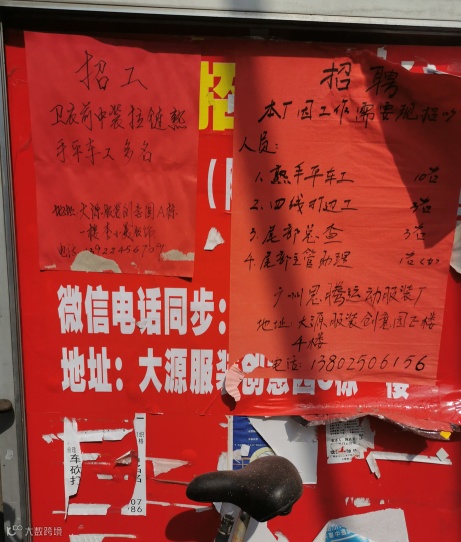 招工
卫衣前中装拉链熟
手平车工多名
地址:大源服装创意园A栋
招聘
本厂因工作需要现招以下
人员:
1.熟手平车工 10名
2.四线打边工 3名
3.尾部总查 3名
4.尾部主管助理 1名(女)
广州思腾运动服装厂
地址:大源服装创意园B栋
4楼
电话:13802506156
招
微信电话同步:
地址:大源服装创意园 栋 楼
车砍打
07
86
大数跨境